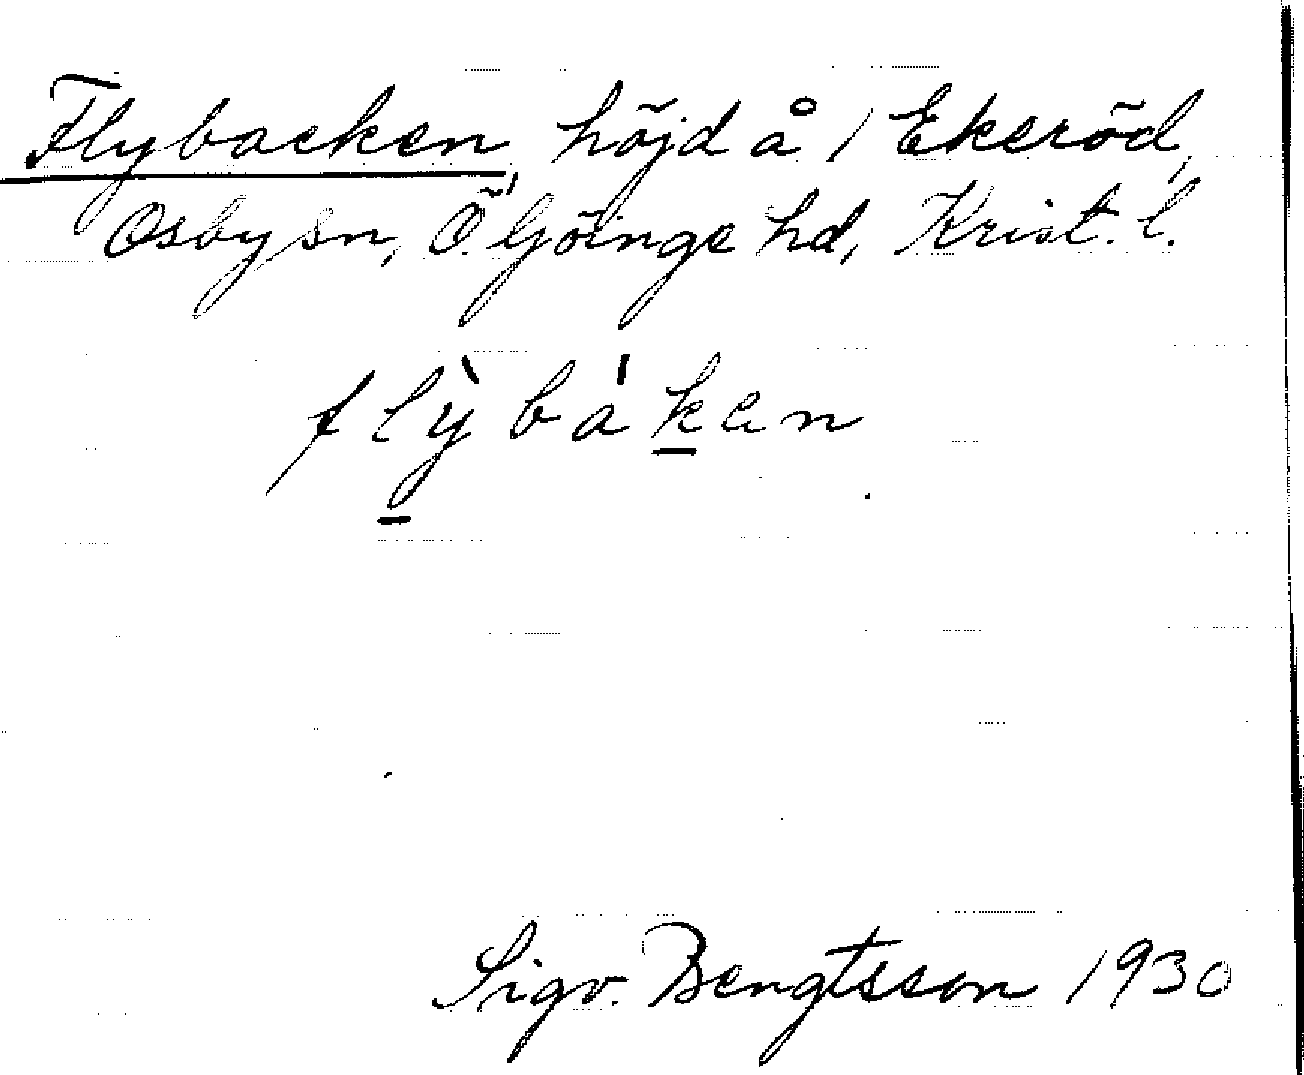 Flybacken, höjd å 1 Ekeröd,
Osby sn, Ö. Göinge hd, Krist. l.
flỳbàken
Sigv. Bengtsson 1930